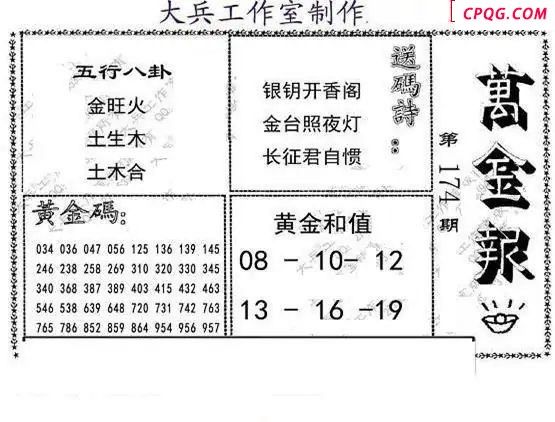 大兵工作室制作
CPQG.COM
五行八卦
金旺火
土生木
土木合
送碼詩：
银钥开香阁
金台照夜灯
长征君自惯
萬金報
第174期
黃金碼:
034 036 047 056 125 136 139 145
246 238 258 269 310 320 330 345
340 368 387 389 403 415 432 463
546 538 639 648 720 731 742 763
765 786 852 859 864 954 956 957
黄金和值
08 - 10- 12
13 - 16 -19